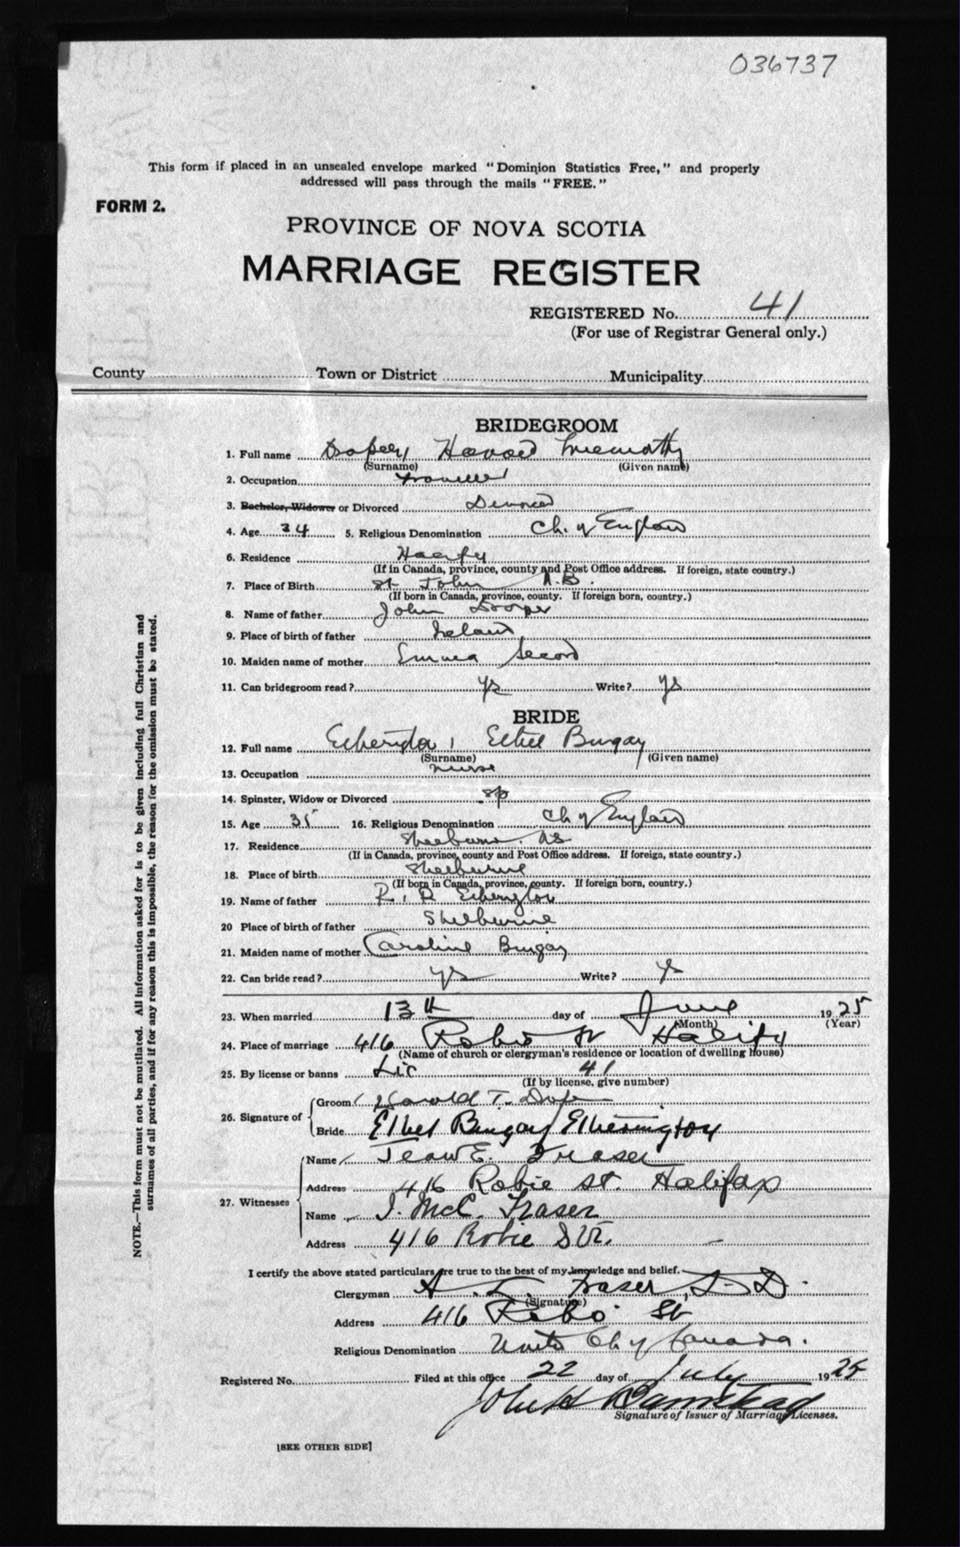 036737
This form if placed in an unsealed envelope marked "Dominion Statistics Free," and properly
addressed will pass through the mails "FREE."
FORM 2.
PROVINCE OF NOVA SCOTIA
MARRIAGE REGISTER
REGISTERED No. 41
(For use of Registrar General only.)
County Town or District Municipality
BRIDEGROOM
1. Full name Draper, Harold
(Surname) (Given name)
2. Occupation Traveller
3. Bachelor, Widower or Divorced Divorced
4. Age 34 5. Religious Denomination Ch. of England
6. Residence Halifax
(If in Canada, province, county and Post Office address. If foreign, state country.)
7. Place of Birth St. John N.B.
(If born in Canada, province, county. If foreign born, country.)
8. Name of father John Draper
9. Place of birth of father Ireland
10. Maiden name of mother Emma Secord
11. Can bridegroom read? ys Write? ys
BRIDE
12. Full name Etherington, Ethel Bingay
(Surname) (Given name)
13. Occupation nurse
14. Spinster, Widow or Divorced sp
15. Age 35 16. Religious Denomination Ch of England
17. Residence Shelburne. NS
(If in Canada, province, county and Post Office address. If foreign, state country.)
18. Place of birth Shelburne
(If born in Canada, province, county. If foreign born, country.)
19. Name of father R. Etherington
20 Place of birth of father Shelburne
21. Maiden name of mother Caroline Bingay
22. Can bride read? ys Write? ys
23. When married 13th day of June 1925
(Month) (Year)
24. Place of marriage 416 Robie St Halifax
(Name of church or clergyman's residence or location of dwelling house)
25. By license or banns Lic 41
(If by license, give number)
26. Signature of Groom Harold T. Draper
Bride Ethel Bingay Etherington
27. Witnesses Name Jean E. Fraser
Address 416 Robie St. Halifax
Name J. McC. Fraser
Address 416 Robie St.
I certify the above stated particulars are true to the best of my knowledge and belief.
Clergyman A. L. Fraser, D.D.
(Signature)
Address 416 Robie St
Religious Denomination United Ch of Canada.
Registered No. Filed at this office 22 day of July 1925
John H Barnstead
Signature of Issuer of Marriage Licenses.
[SEE OTHER SIDE]
NOTE.—This form must not be mutilated. All information asked for is to be given including full Christian and
surnames of all parties, and if for any reason this is impossible, the reason for the omission must be stated.